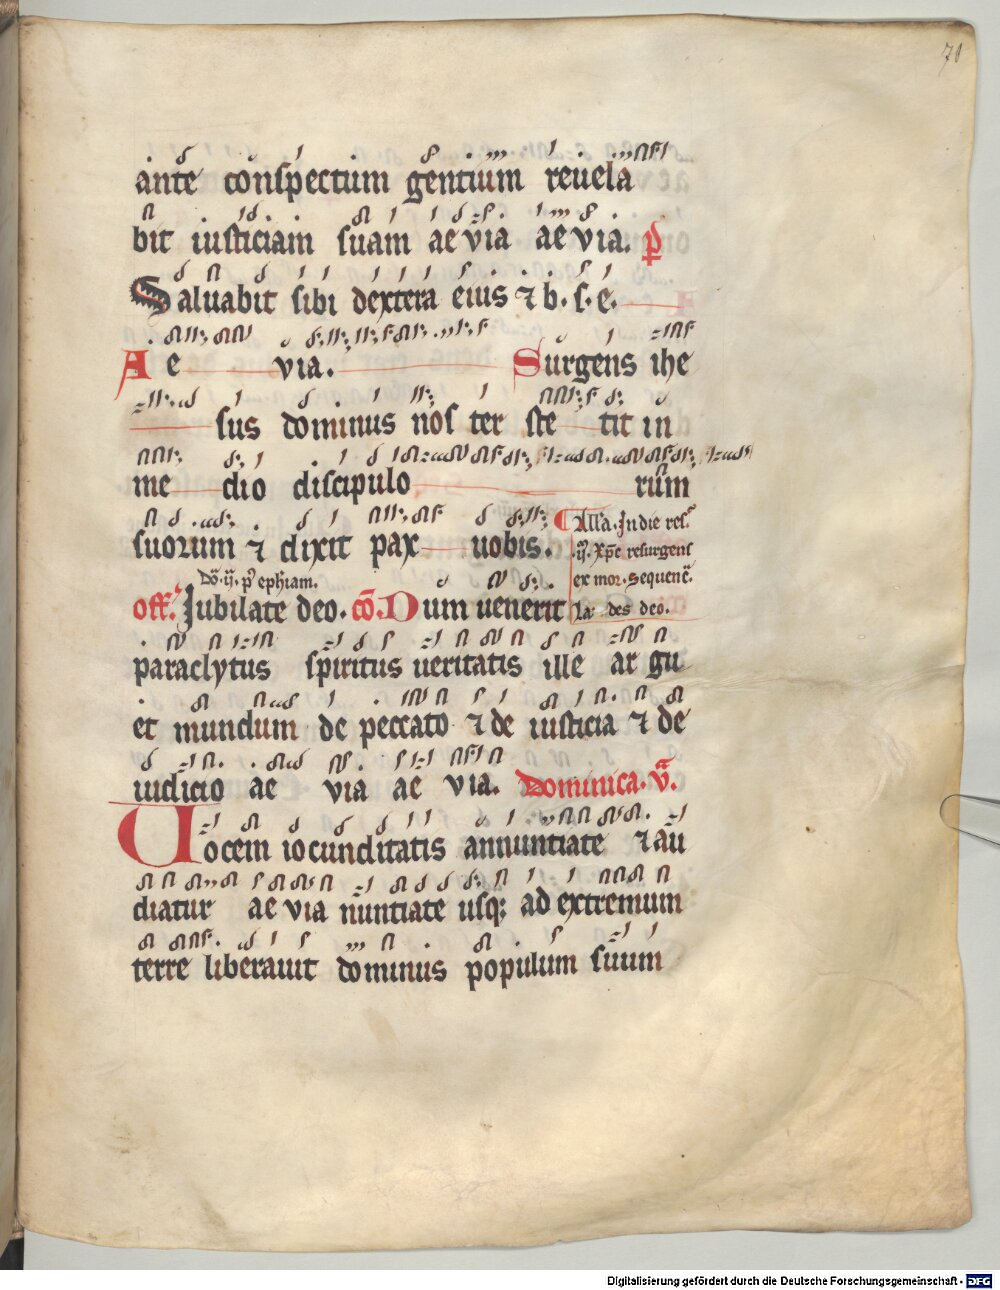 70
ante conspectum gentium reuela
bit iusticiam suam aeuia aeuia. p̄
Saluabit sibi dextera eius ⁊ b. s. e.
Ae uia. Surgens ihe
sus dominus nos ter ste tit in
me dio discipulo rum
suorum ⁊ dixit pax uobis.
All'a. In die res.
.ij. xp̄c resurgens
ex mor. Sequenē.
La des deo.
Dō. ij. p' ephiam.
off. Jubilate deo. cō. Dum uenerit
paraclytus spiritus ueritatis ille ar gu
et mundum de peccato ⁊ de iusticia ⁊ de
iudicio ae uia ae uia. Dominica. v.
Uocem iocunditatis annuntiate ⁊ au
diatur ae uia nuntiate usq; ad extremum
terre liberauit dominus populum suum
Digitalisierung gefördert durch die Deutsche Forschungsgemeinschaft - DFG